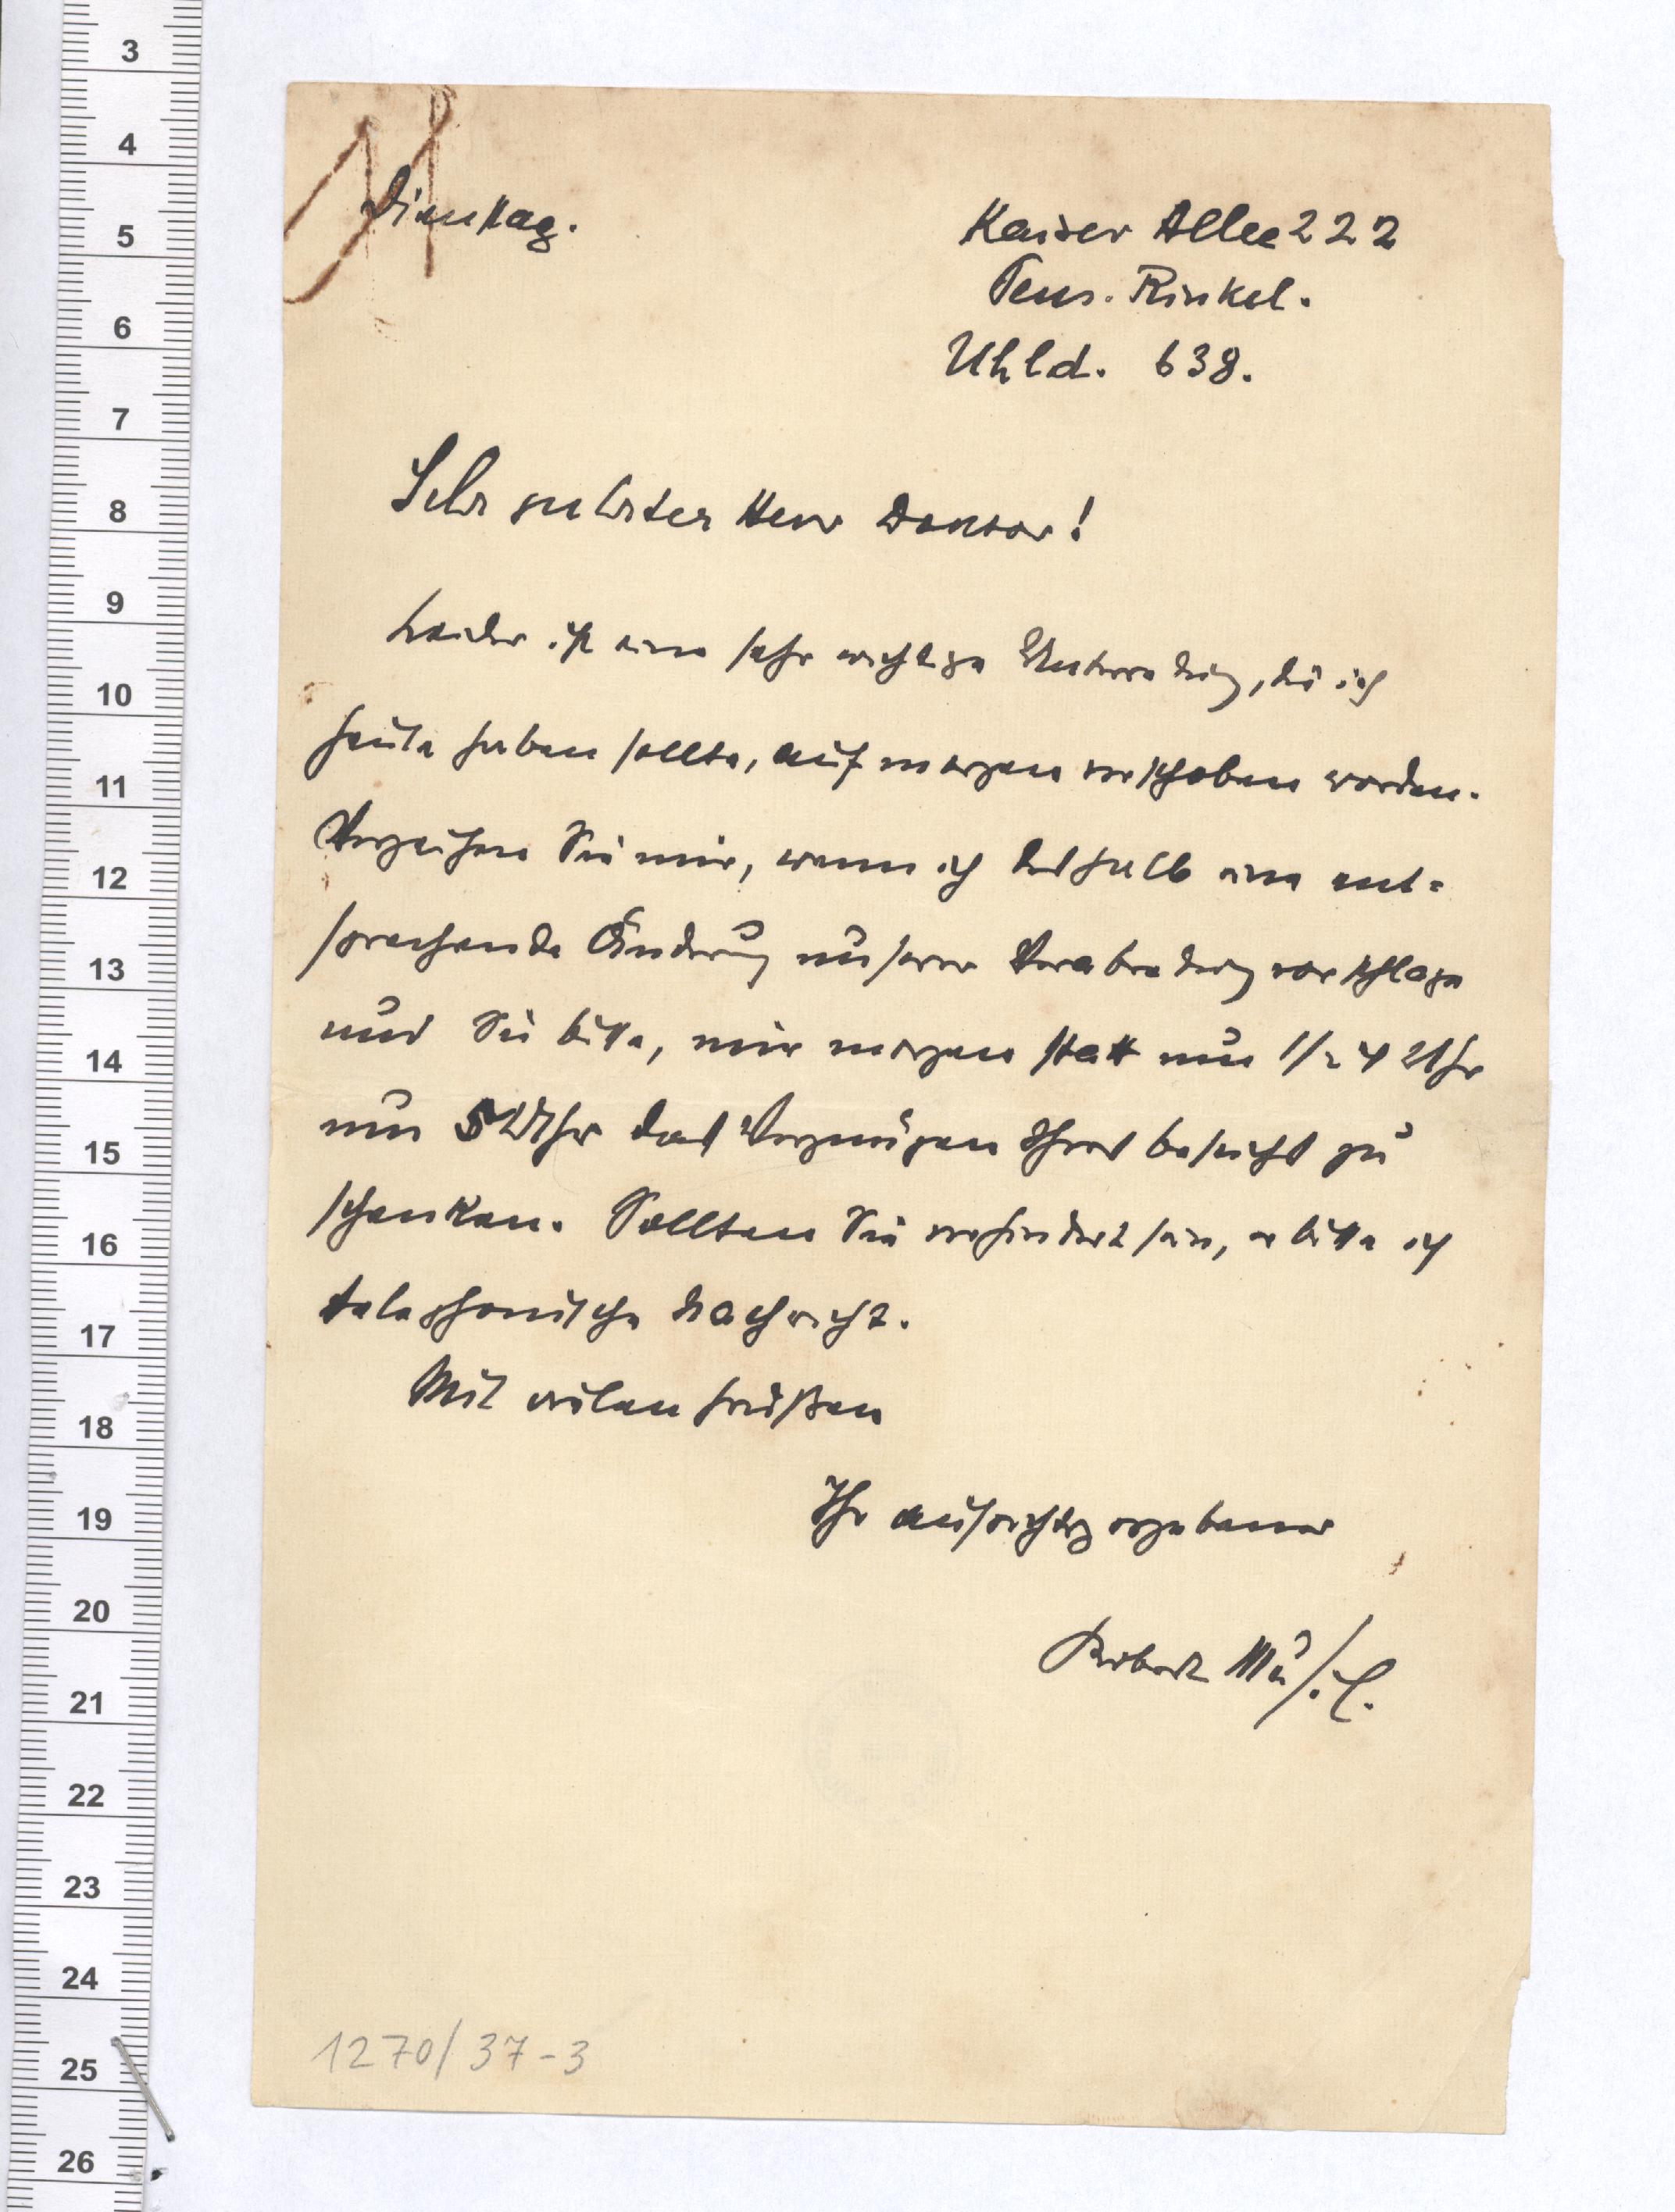 3
4
5
6
7
8
9
10
11
12
13
14
15
16
17
18
19
20
21
22
23
24
25
26
Dienstag.
Kaiser Allee 222
Pens. Rinkel.
Uhld. 638.
Sehr geehrter Herr Doktor!
Leider ist eine sehr wichtige Unterredung, die ich
heute haben sollte, auf morgen verschoben worden.
Verzeihen Sie mir, wenn ich deshalb eine ent-
sprechende Änderung unserer Verabredung vorschlage
und Sie bitte, mir morgen statt um 1/2 4 Uhr
um 5 Uhr das Vergnügen Ihres Besuchs zu
schenken. Sollten Sie verhindert sein, erbitte ich
telephonische Nachricht.
Mit vielen Grüßen
Ihr aufrichtig ergebener
Robert Musil.
1270/37-3